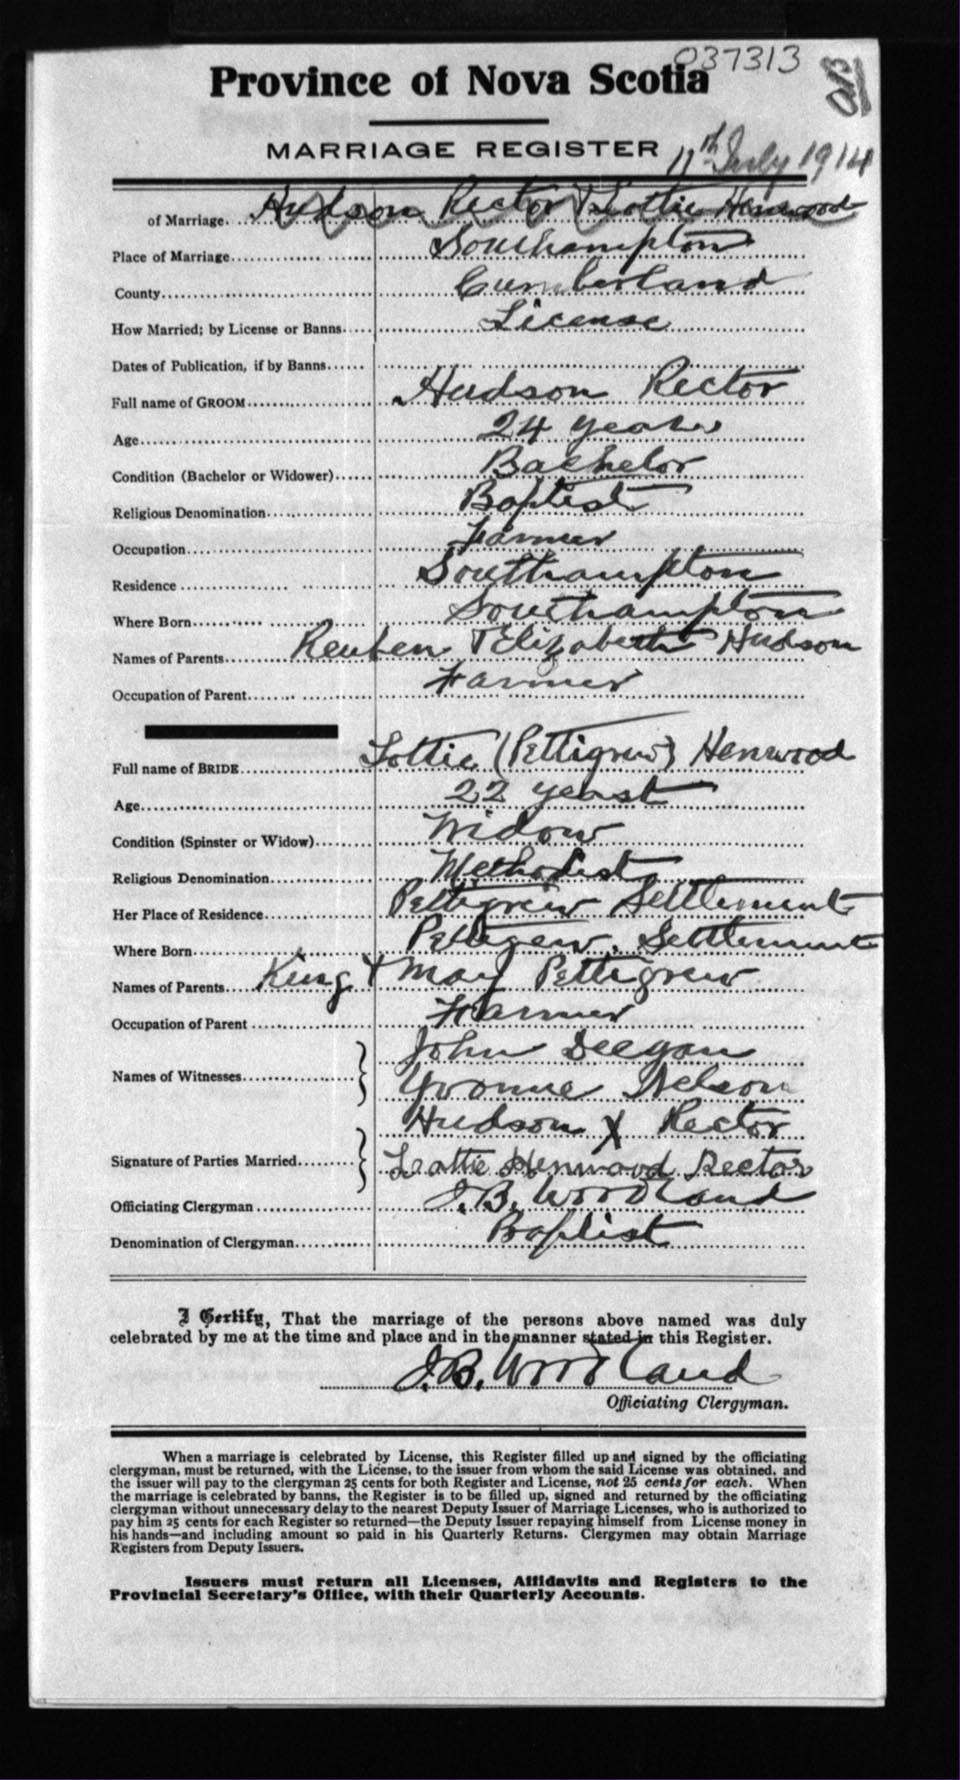 037313
Province of Nova Scotia
MARRIAGE REGISTER 11th July 1914
of Marriage. Hudson Rector & Lottie Henwood
Place of Marriage Southampton
County Cumberland
How Married; by License or Banns License
Dates of Publication, if by Banns
Full name of GROOM Hudson Rector
Age 24 years
Condition (Bachelor or Widower) Bachelor
Religious Denomination Baptist
Occupation Farmer
Residence Southampton
Where Born Southampton
Names of Parents Reuben & Elizabeth Hudson
Occupation of Parent Farmer
Full name of BRIDE Lottie (Pettigrew) Henwood
Age 22 years
Condition (Spinster or Widow) Widow
Religious Denomination Methodist
Her Place of Residence Pettigrew Settlement
Where Born Pettigrew Settlement
Names of Parents King & May Pettigrew
Occupation of Parent Farmer
John Deegan
Names of Witnesses Yvonne Nelson
Hudson X Rector
Signature of Parties Married Lottie Henwood Rector
Officiating Clergyman J.B. Woodland
Denomination of Clergyman Baptist
I Certify, That the marriage of the persons above named was duly
celebrated by me at the time and place and in the manner stated in this Register.
J.B. Woodland
Officiating Clergyman.
When a marriage is celebrated by License, this Register filled up and signed by the officiating
clergyman, must be returned, with the License, to the issuer from whom the said License was obtained, and
the issuer will pay to the clergyman 25 cents for both Register and License, not 25 cents for each. When
the marriage is celebrated by banns, the Register is to be filled up, signed and returned by the officiating
clergyman without unnecessary delay to the nearest Deputy Issuer of Marriage Licenses, who is authorized to
pay him 25 cents for each Register so returned—the Deputy Issuer repaying himself from License money in
his hands—and including amount so paid in his Quarterly Returns. Clergymen may obtain Marriage
Registers from Deputy Issuers.
Issuers must return all Licenses, Affidavits and Registers to the
Provincial Secretary's Office, with their Quarterly Accounts.